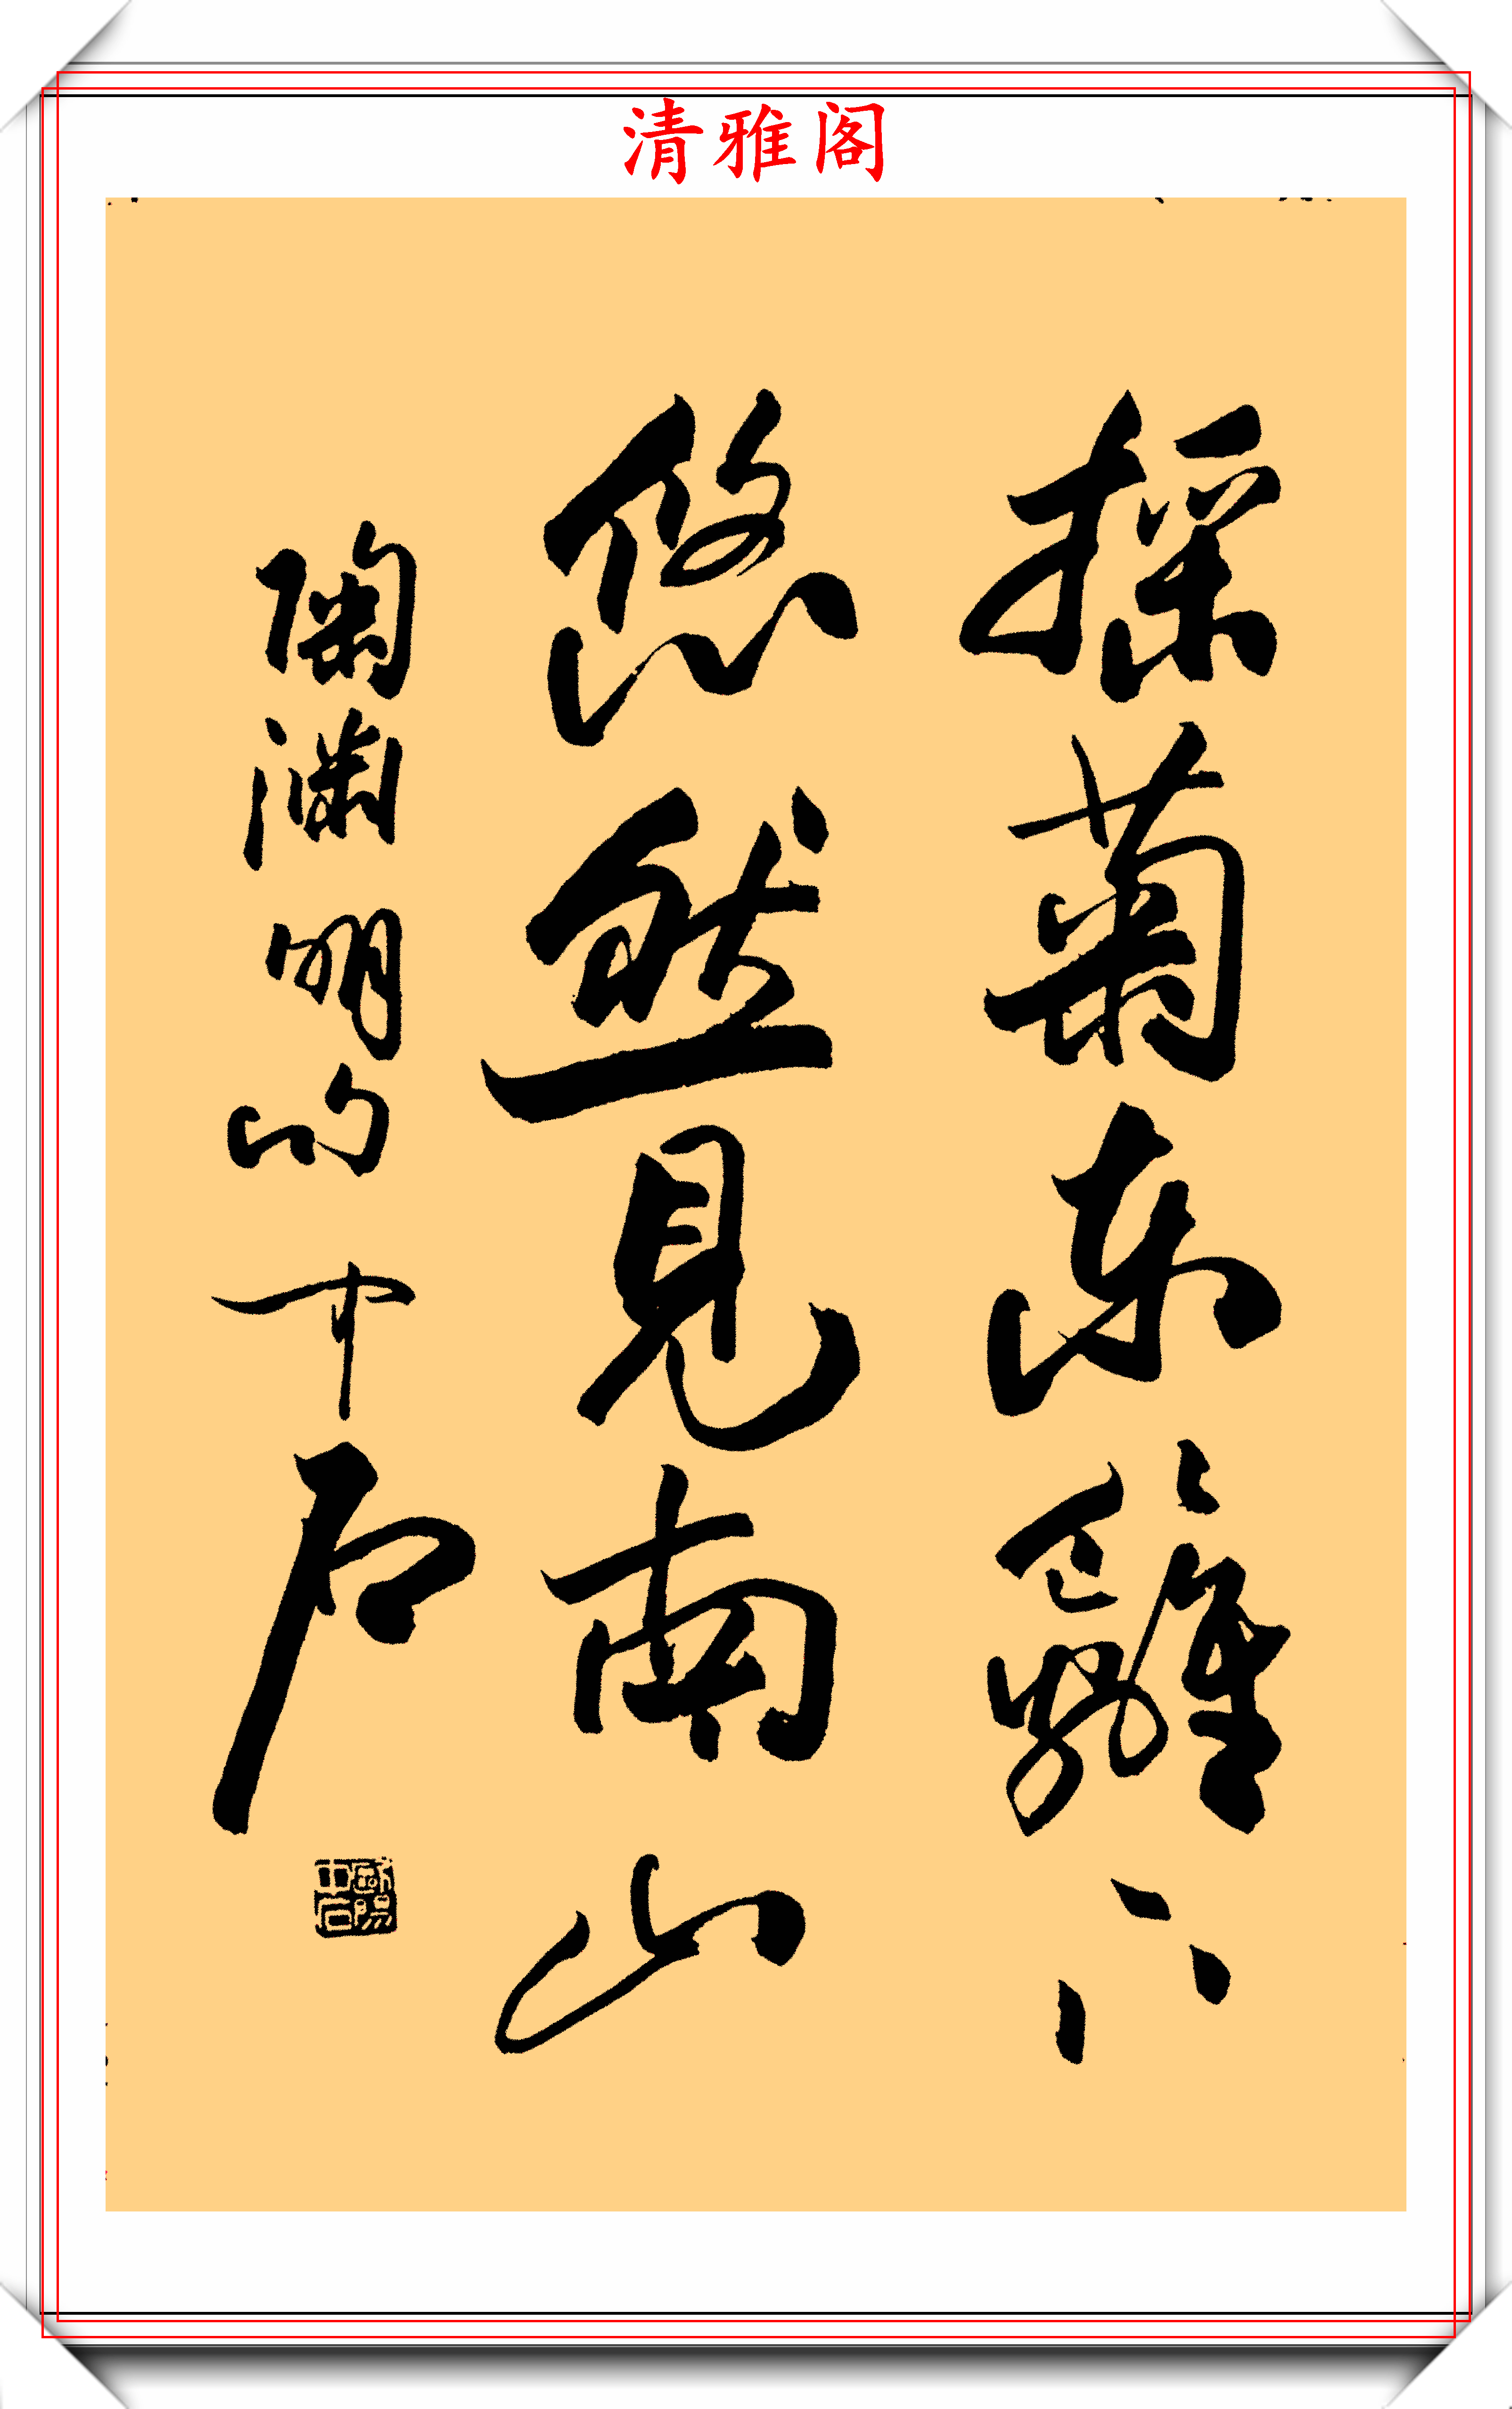 清雅阁
採菊东籬下
悠然見南山
陶渊明句 中石
歐陽中石